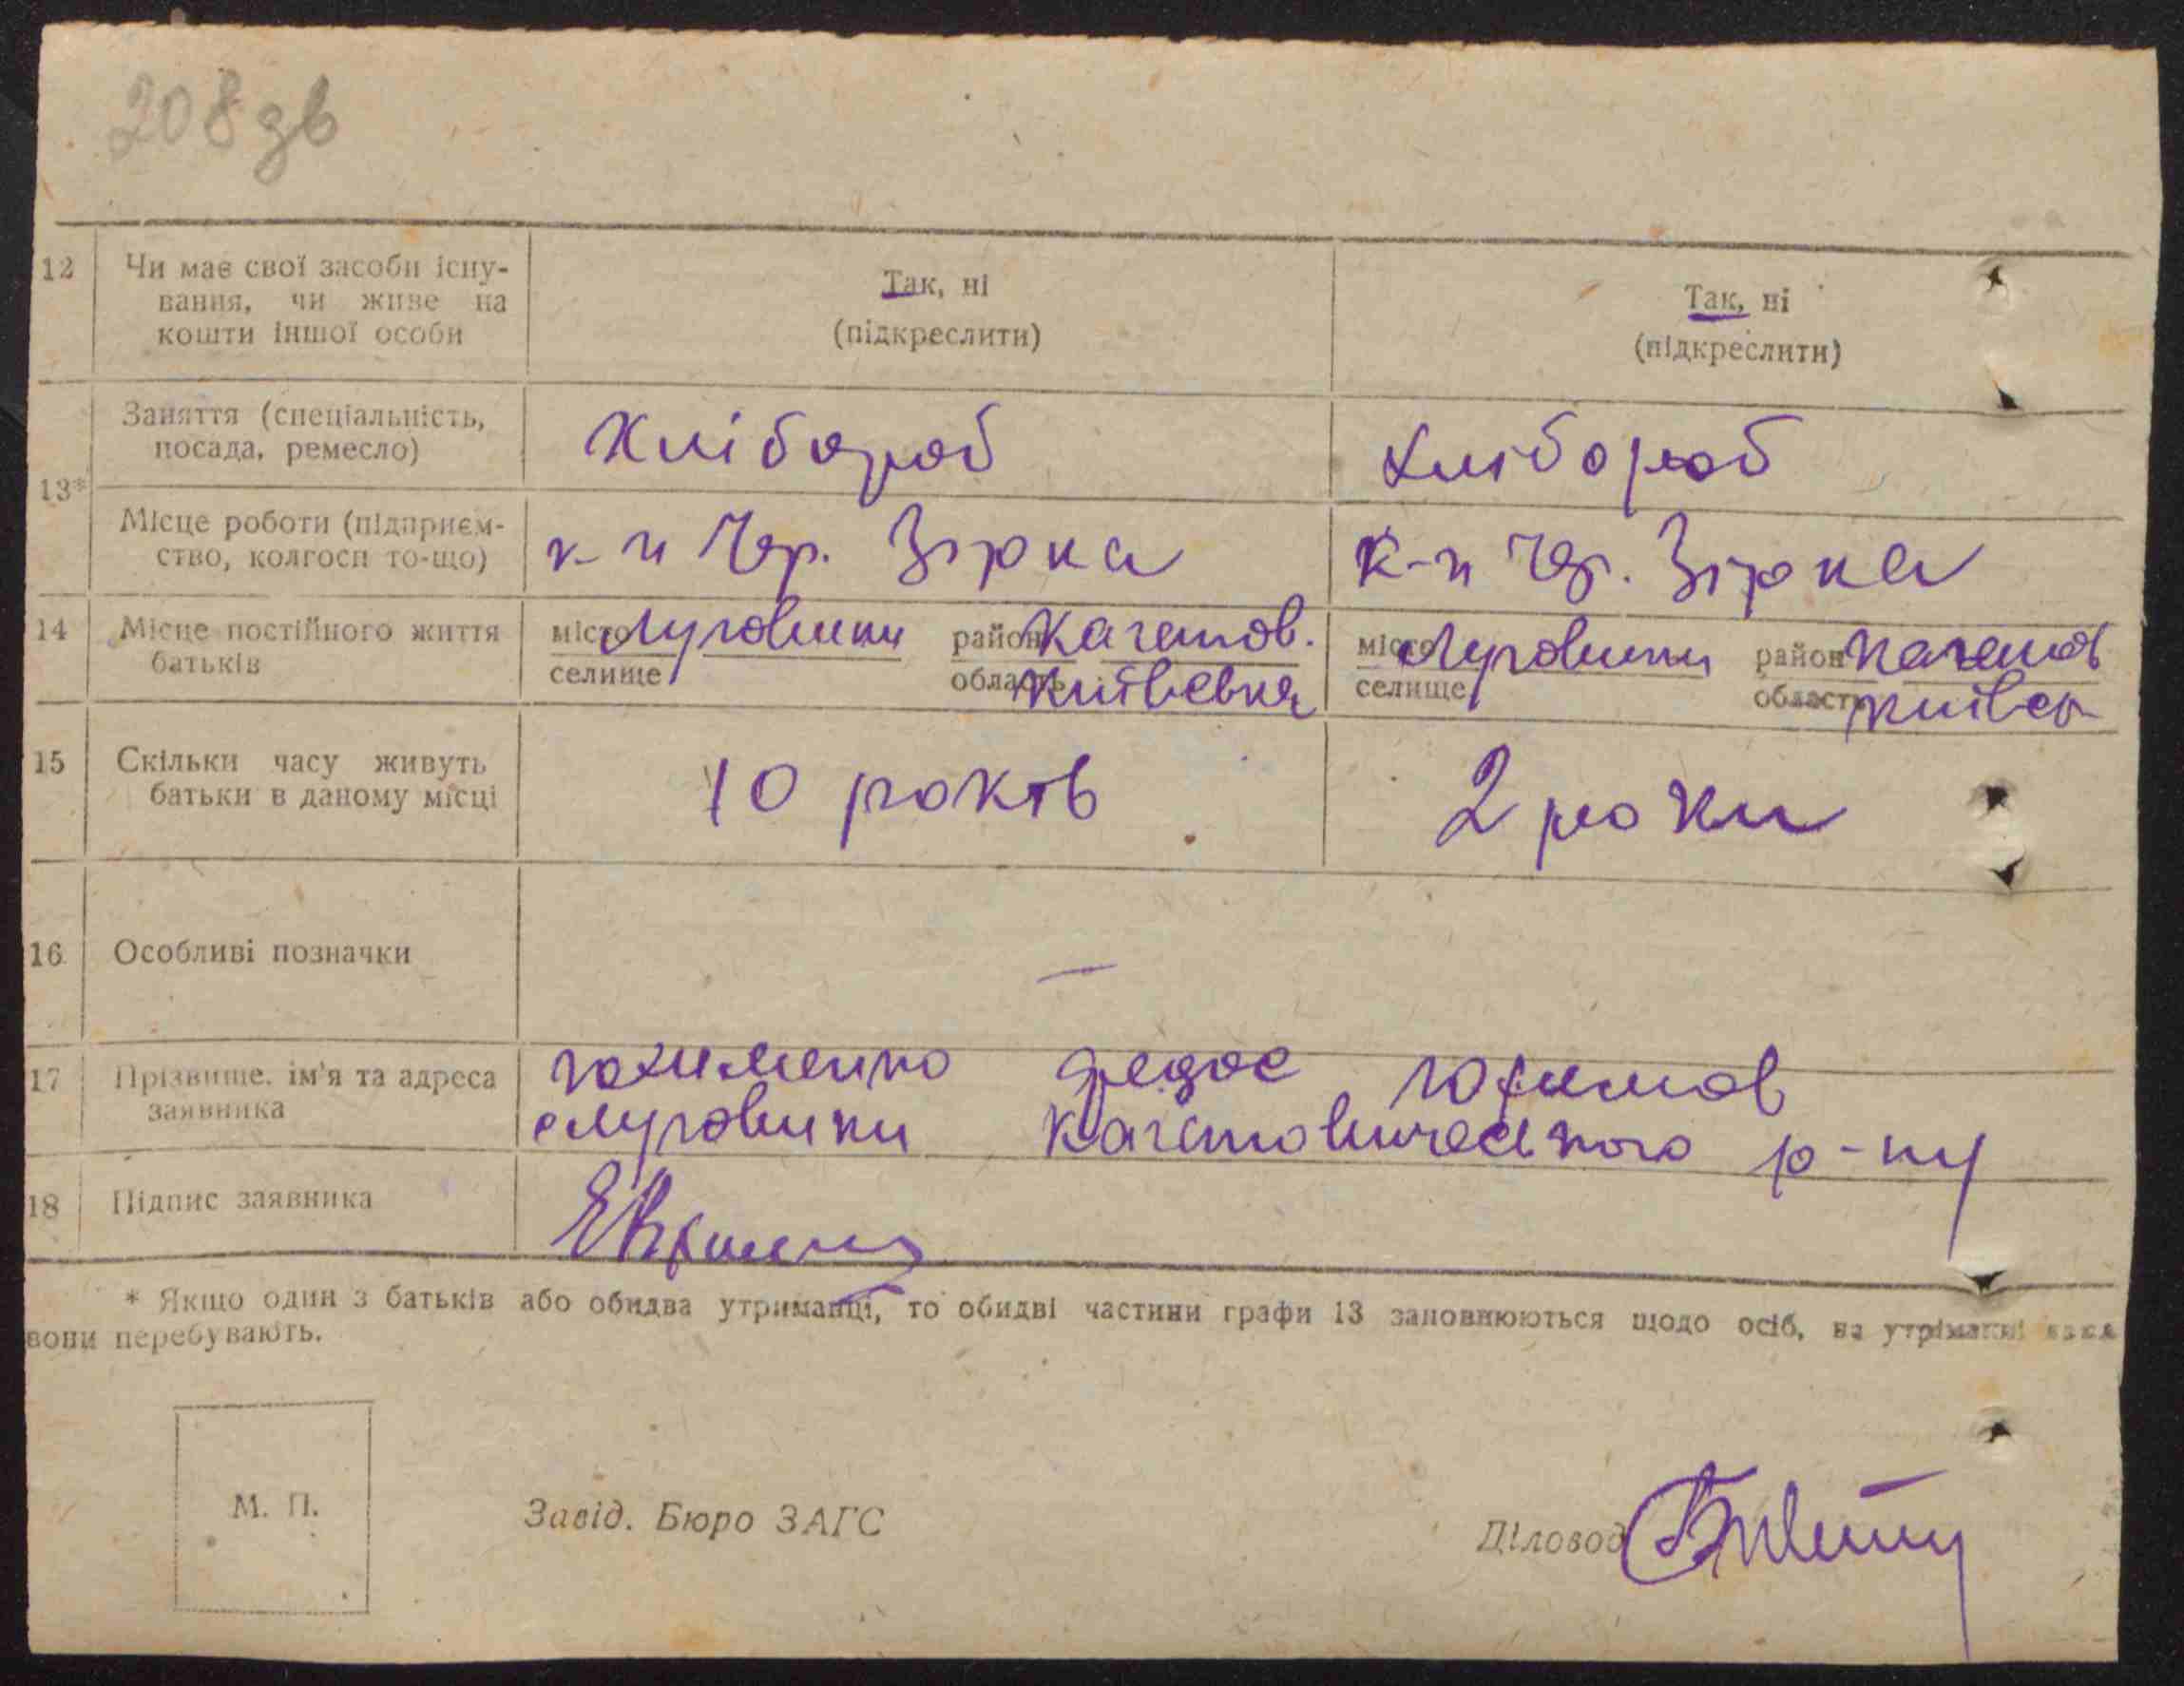 208 зв
12 Чи має свої засоби існу-
вання, чи живе на
кошти іншої особи
Так, ні
(підкреслити)
Так, ні
(підкреслити)
13*
Заняття (спеціальність,
посада, ремесло)
Хлібороб
Хлібороб
Місце роботи (підприєм-
ство, колгосп то-що)
к-п Чер. Зірка
к-п Чер. Зірка
14 Місце постійного життя
батьків
місто Луговики район Кагамов.
селище область Київська
місто Луговики район Кагамов
селище область Київсь
15 Скільки часу живуть
батьки в даному місці
10 років
2 роки
16 Особливі позначки
—
17 Прізвище, ім'я та адреса
заявника
Федос Юхимов
с Луговики р-ну
18 Підпис заявника
* Якщо один з батьків або обидва утриманці, то обидві частини графи 13 заповнюються щодо осіб, на утриманні яких
вони перебувають.
М. П.
Завід. Бюро ЗАГС
Діловод